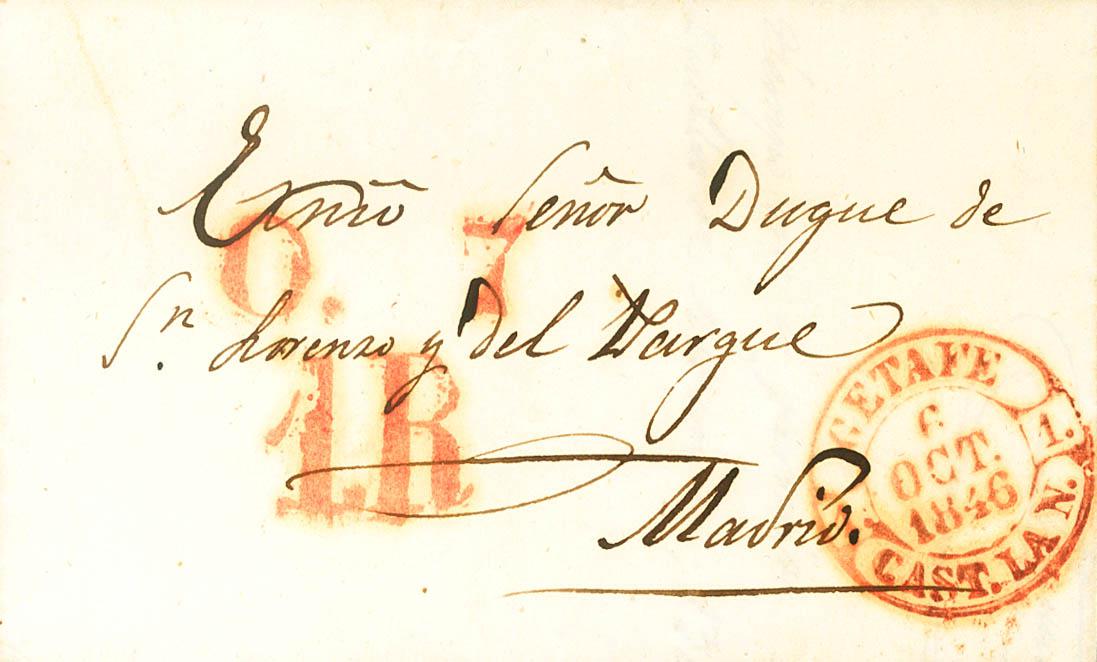 Exmõ Señor Duque de
Sn. Lorenzo y del Parque
Madrid.
O. 7
1R
GETAFE
1.
6
OCT.
1846
CAST. LA N.